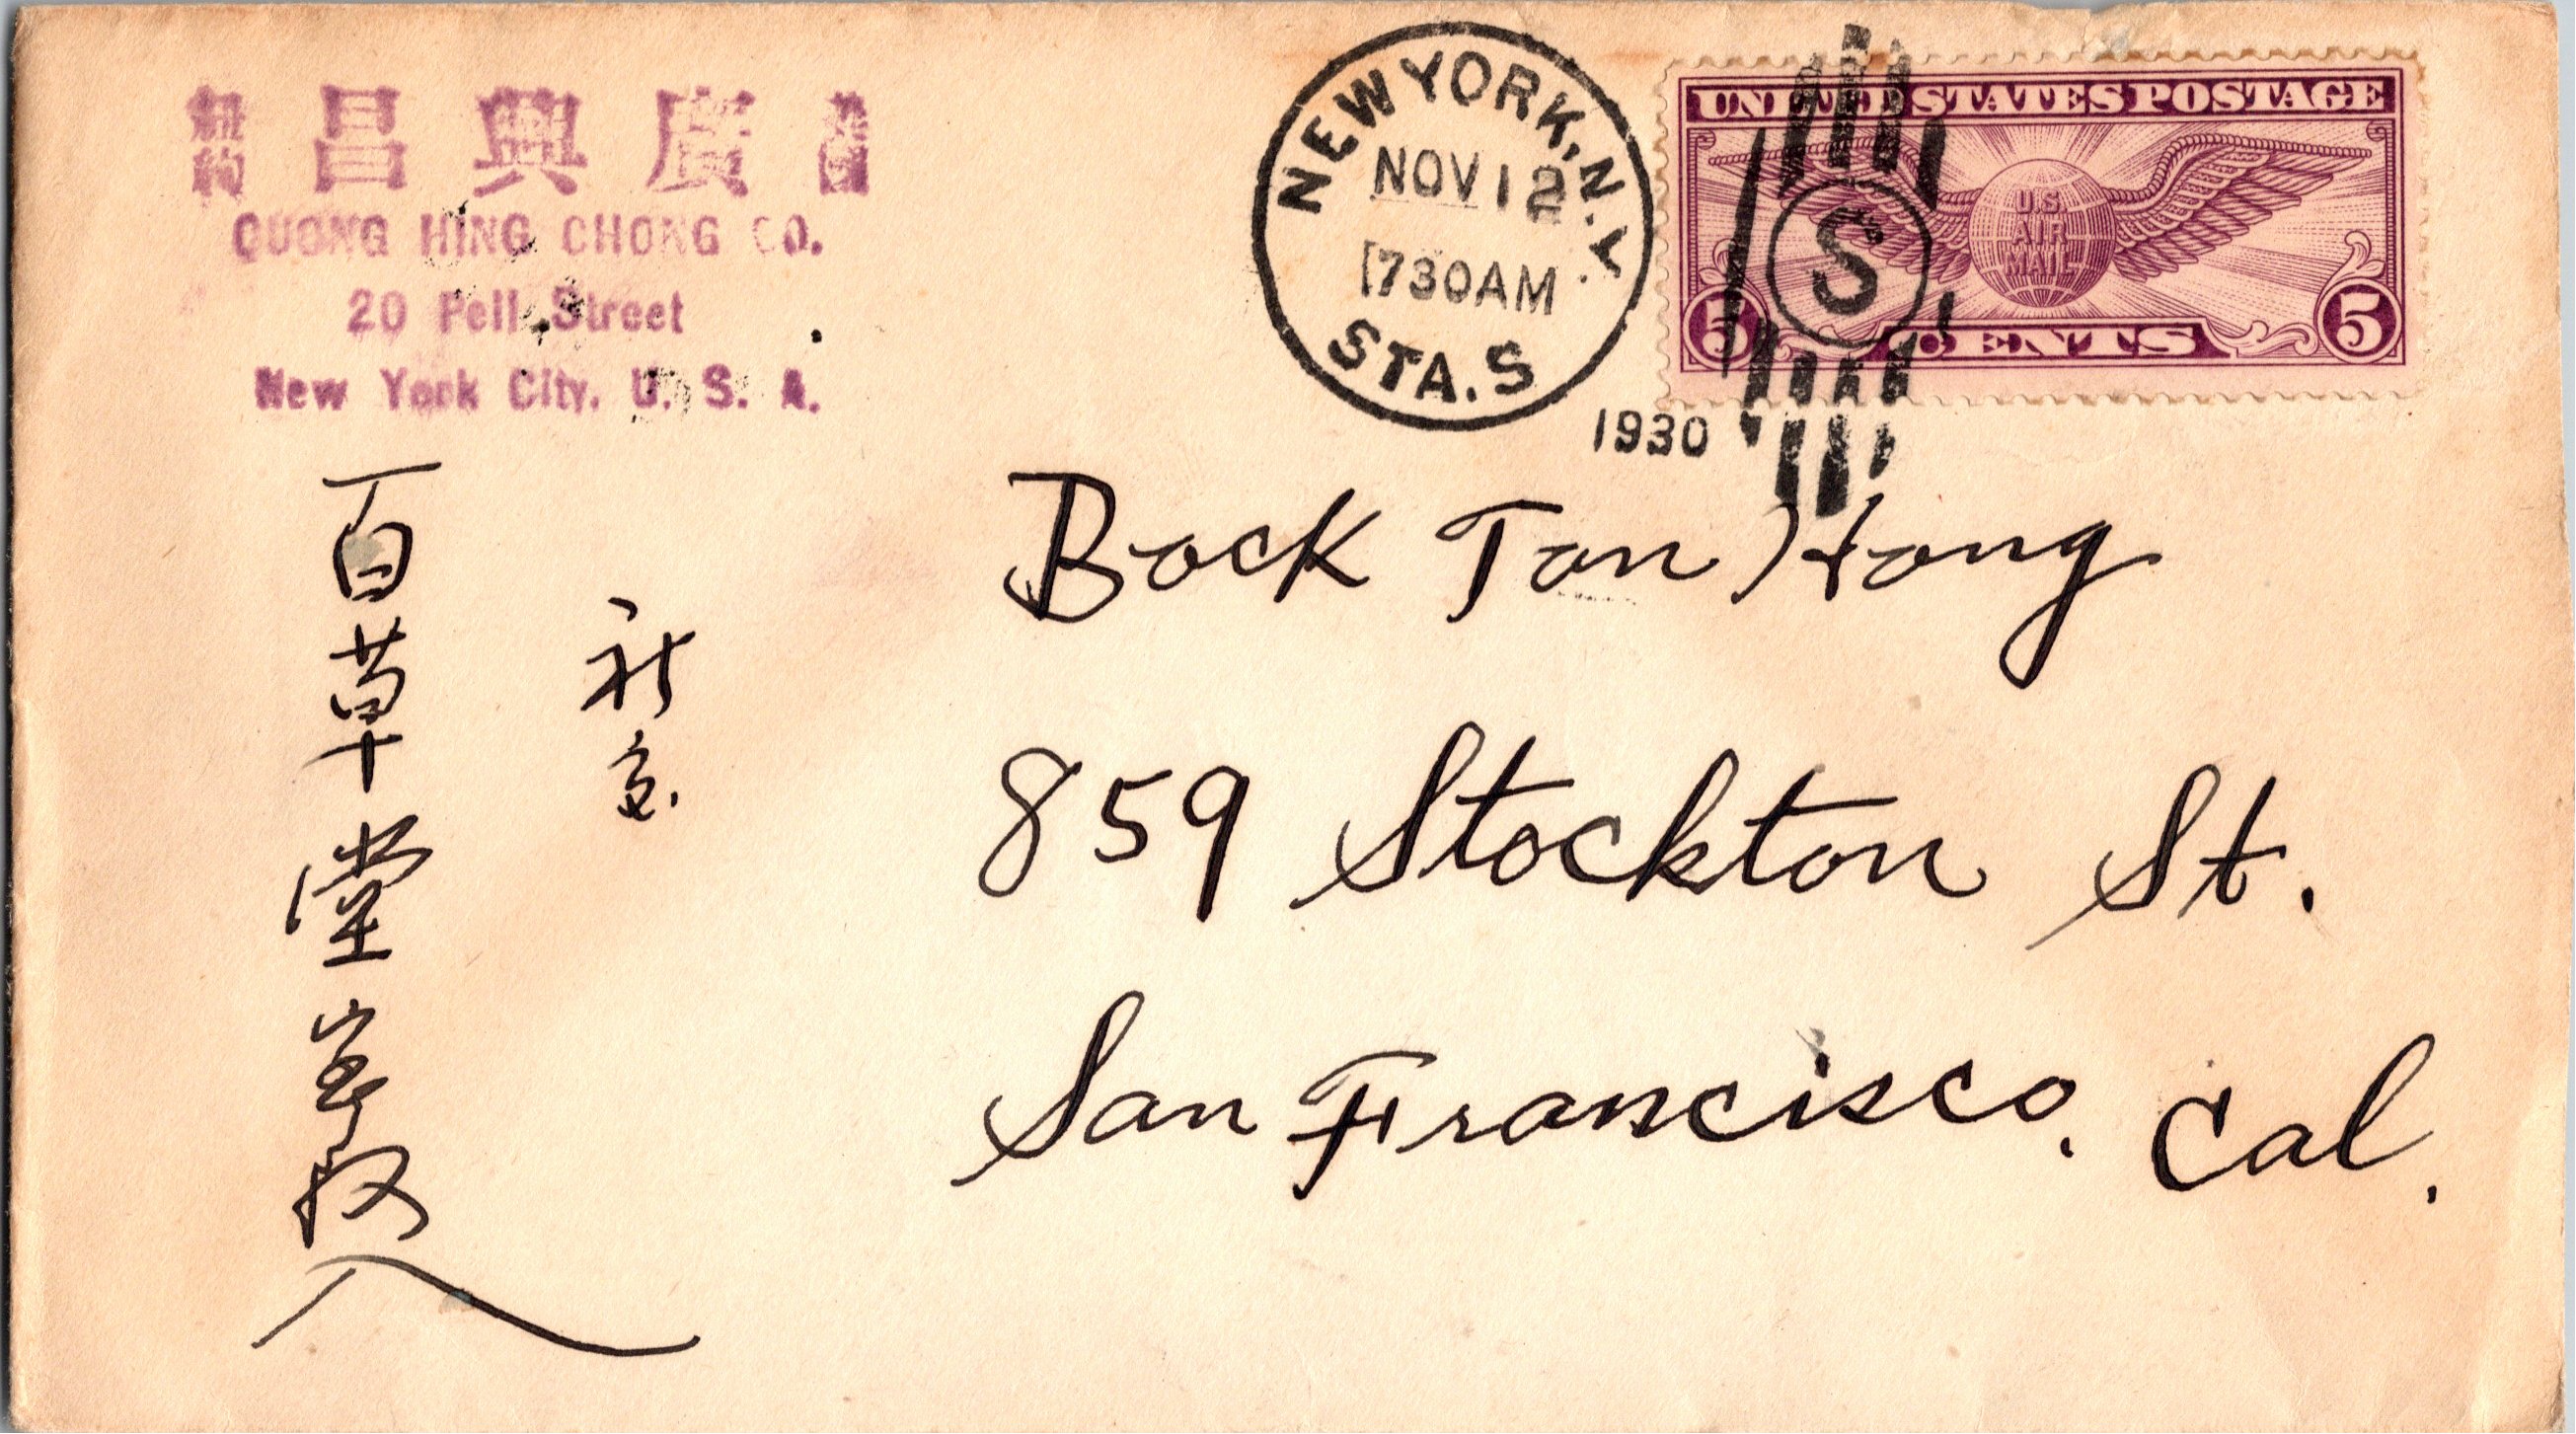 紐約 昌 興 廣 美國
QUONG HING CHONG CO.
20 Pell Street
New York City. U. S. A.
NEW YORK, N.Y.
NOV 12
730AM
STA. S
1930
S
UNITED STATES POSTAGE
U.S.
AIR
MAIL
5 CENTS 5
Bock Ton Hong
859 Stockton St.
San Francisco. Cal.
百草堂